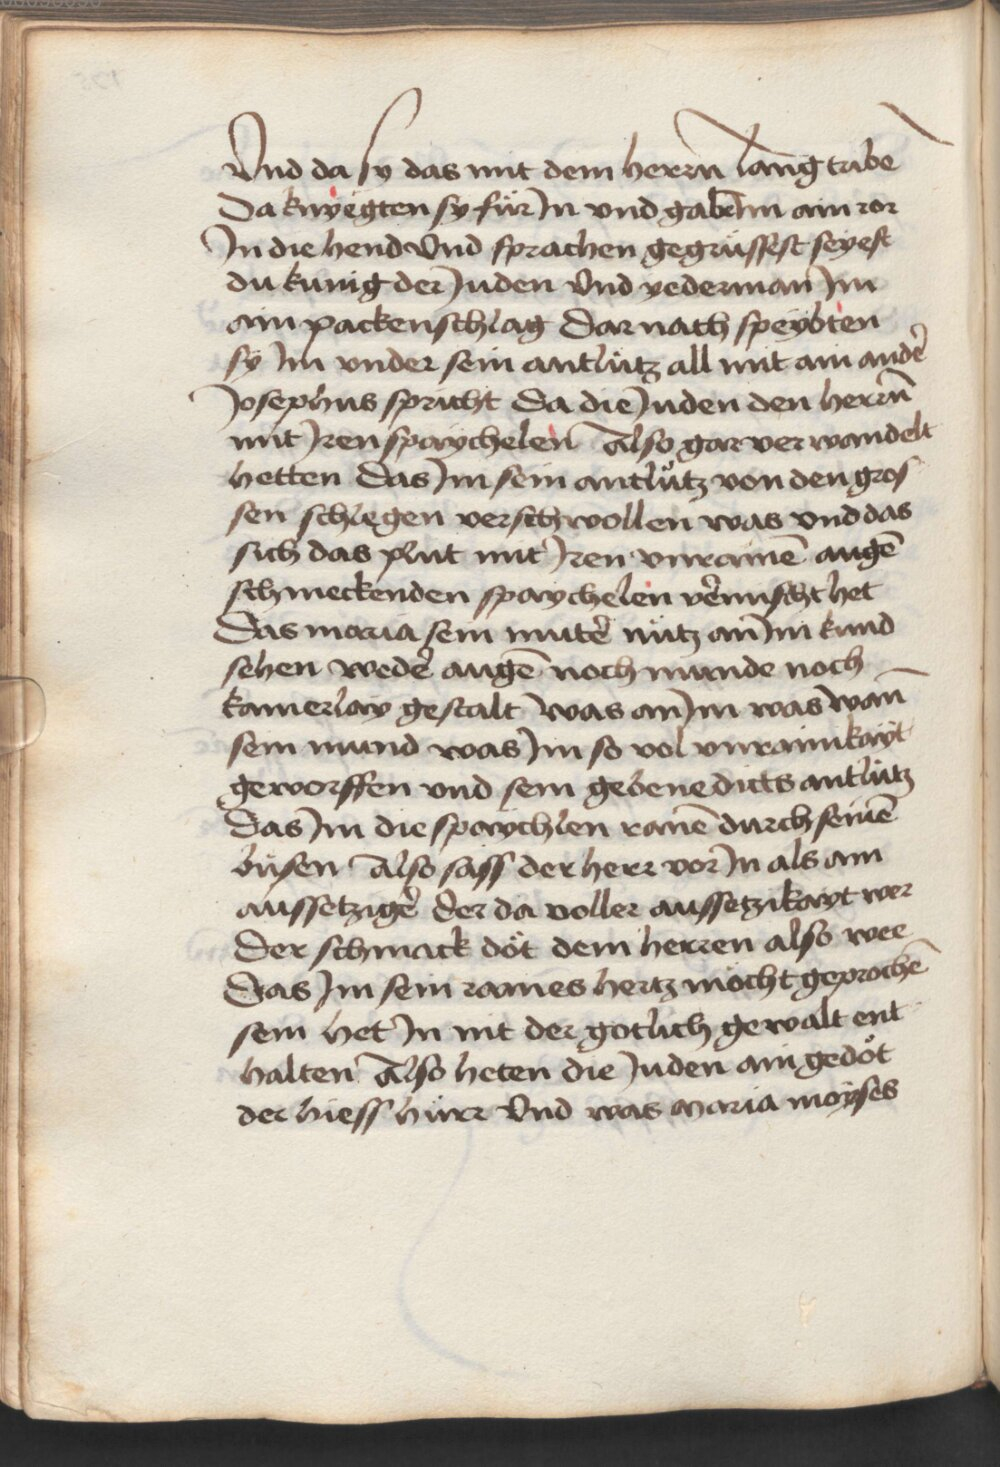 Vnd da sy das mit dem herrn lang tribe
Da knyegten sy für In vnd gabn Im ain ror
In die hend Vnd sprachen gegrüsset seyest
du kunig der Juden Vnd yederman Im
ain packenschlag Dar nach speybten
sy Im vnder sein antlütz all mit ain andē
Josephus spricht Da die Juden den herrn̄
mit Iren spaychelen Also gar verwandelt
hetten Das Im sein antlütz von den gros
sen schlegen verschwollen was vnd das
sich das plut mit Iren vnrainē augē
schmeckenden spaychelen vēmischt het
Das maria sein mutē nütz an Im kund
sehen wedē augē noch munde noch
kainerlay gestalt was an Im was wan̄
sein mund was Im so vol vnrainikayt
geworffen vnd sein gebenedicts antlütz
Das Im die spaychlen ranē durch seinē
büsen Also sass der herr vor In als ain
aussetzigē Der da voller aussetzikayt wer
Der schmack döt dem herren also wee
Das Im sein raines hertz möcht geprochē
sein het In nit der gotlich gewalt ent
halten Also heten die Juden ain gedöt
der hiess hürr Vnd was maria moyses